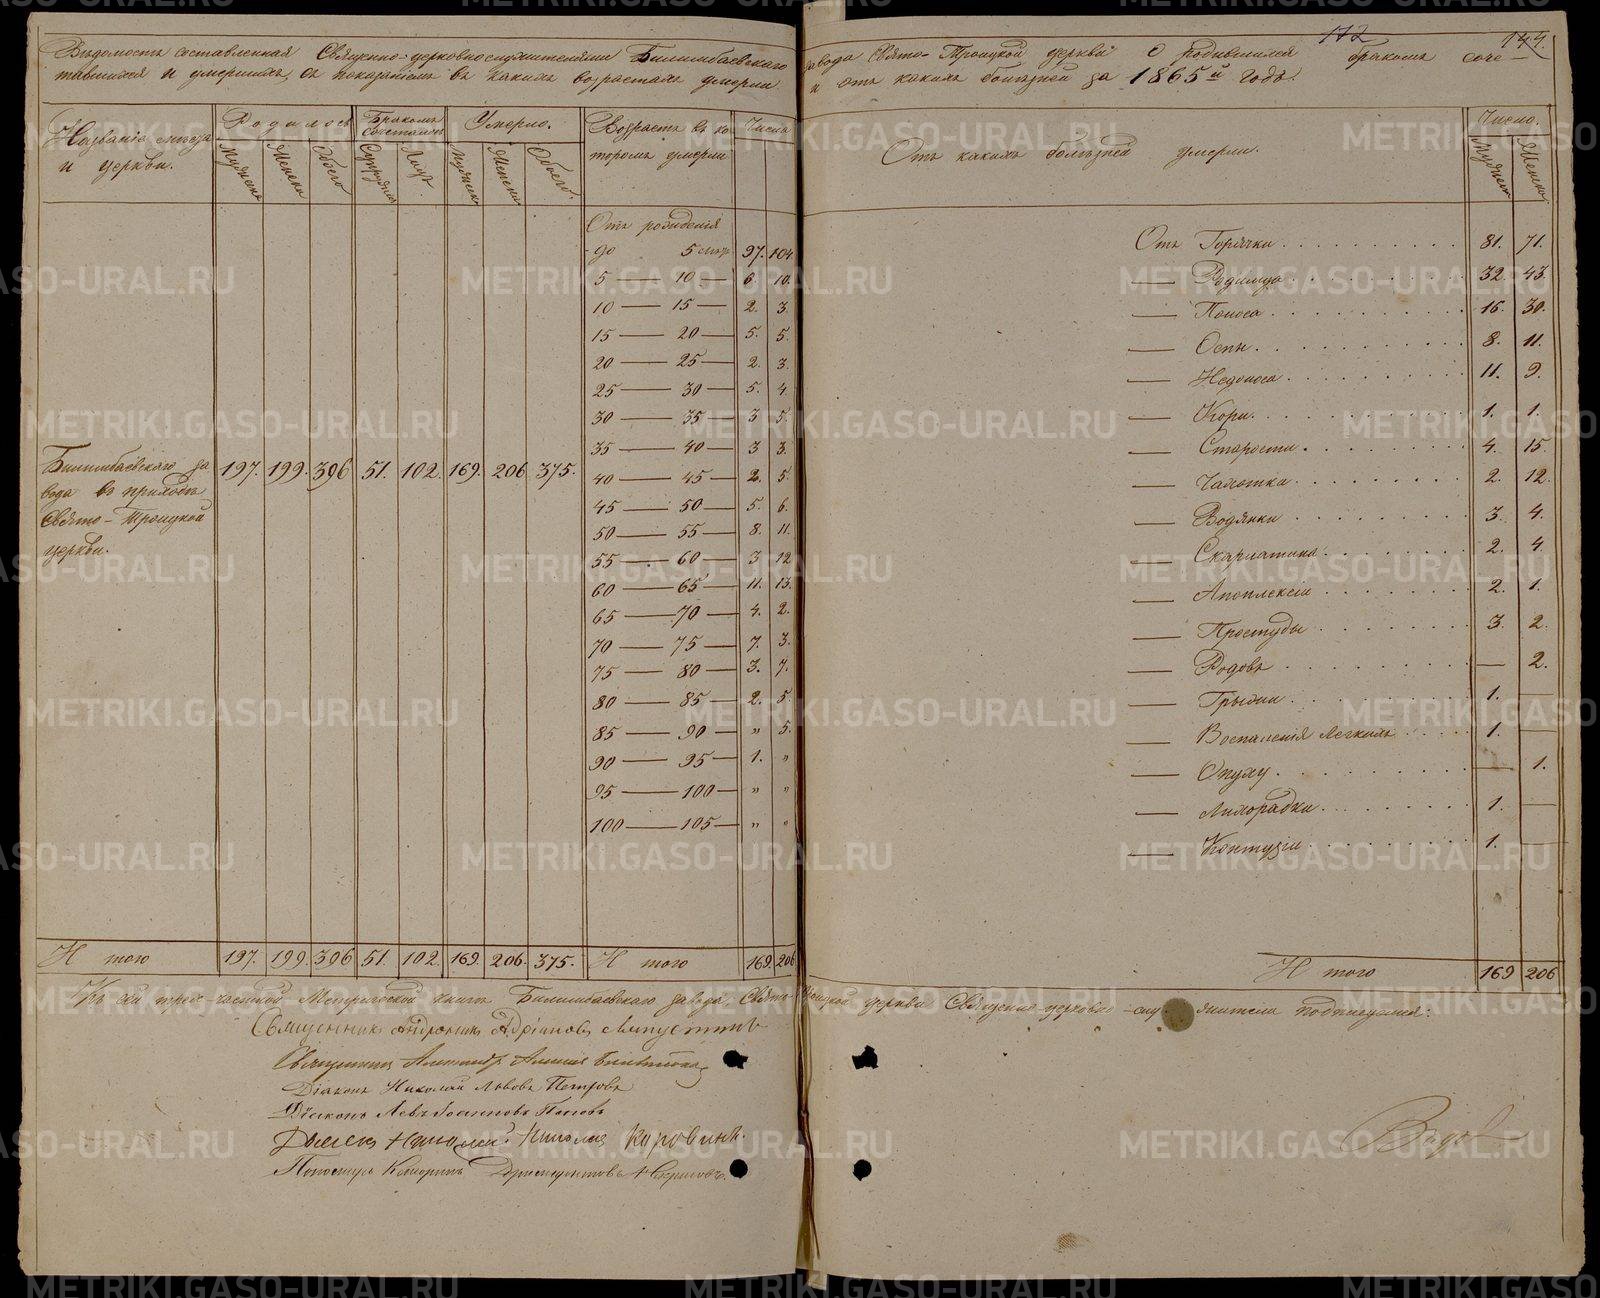 172
144.
Вѣдомость составленная Священно-церковнослужителями Билимбаевскаго завода Свято-Троицкой церкви о родившихся бракомъ соче-
тавшихся и умершихъ, съ показаніемъ въ какихъ возрастахъ умерли и отъ какихъ болѣзней за 1865й годъ.
Названіе мѣста и церкви. Родилось Бракомъ сочеталось Умерло. Возрастъ въ ко- Число
Мужеска Женска Обоего Супружеcтв Лицъ Мужеска Женска Обоего. торомъ умерли
Отъ какихъ болѣзней умерли. Число. Мужеска Женска
Билимбаевскаго за 197. 199. 396 51. 102. 169. 206 375.
вода въ приходѣ
Свято-Троицкой
церкви.
Отъ рожденія
до 5 лѣтъ 97. 104.
5 — 10 — 6. 10.
10 — 15 — 2. 3.
15 — 20 — 5. 5.
20 — 25 — 2. 3.
25 — 30 — 5. 4.
30 — 35 — 3 5.
35 — 40 — 3 3.
40 — 45 — 2. 5.
45 — 50 — 5. 6.
50 — 55 — 8. 11.
55 — 60 — 3 12
60 — 65 — 11. 13.
65 — 70 — 4. 2.
70 — 75 — 7. 3.
75 — 80 — 3. 7.
80 — 85 — 2. 5.
85 — 90 — „ 5.
90 — 95 — 1. „
95 — 100 — „ „
100 — 105 — „ „
Отъ Горячки 81. 71.
— Родимца 32. 43.
— Поноса 16. 30.
— Оспы 8. 11.
— Недоноса 11. 9.
— Кори 1. 1.
— Старости 4. 15.
— Чахотка 2. 12.
— Водянки 3. 4.
— Скарлатина 2. 4.
— Апоплексіи 2. 1.
— Простуды 3. 2.
— Родовъ — 2.
— Грыжи 1. —
— Воспаленія легкихъ 1. —
— Опуху — 1.
— Лихорадки 1. —
— Контузіи 1. —
Итого 197. 199. 396 51. 102. 169. 206. 375. Итого 169. 206
Итого 169 206
Къ сей трехчастной Метрической книгѣ Билимбаевскаго завода, Свято-Троицкой церкви Священно-церковно-служители подписуемся:
Священникъ Андроникъ Адріановъ
Священникъ Александръ
Діаконъ Николай Львовъ Петровъ
Діаконъ Левъ Іоанновъ Поповъ
Николай Коровинъ.
METRIKI.GASO-URAL.RU